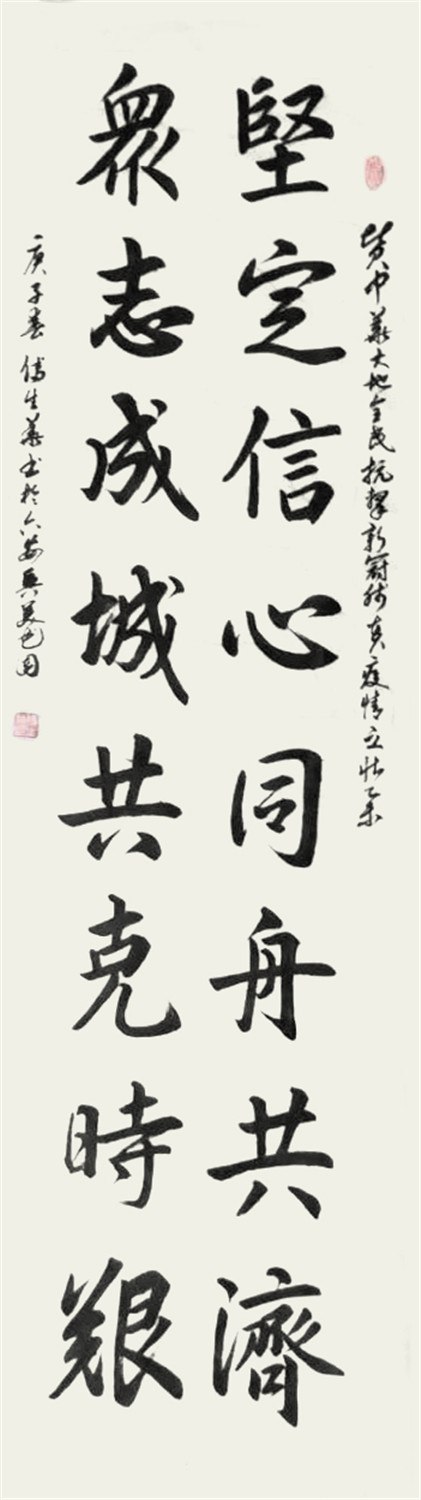 中華大地全民抗擊新冠肺炎疫情
堅定信心同舟共濟
眾志成城共克時艱
庚子春傅生華書於六安